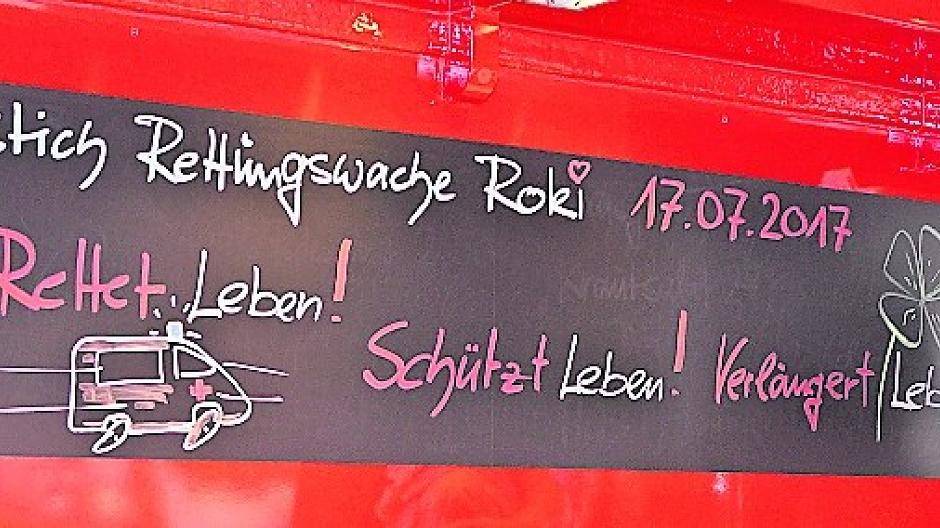 tich Rettungswache Roki 17.07.2017
Rettet Leben!
Schützt Leben! Verlängert Leb